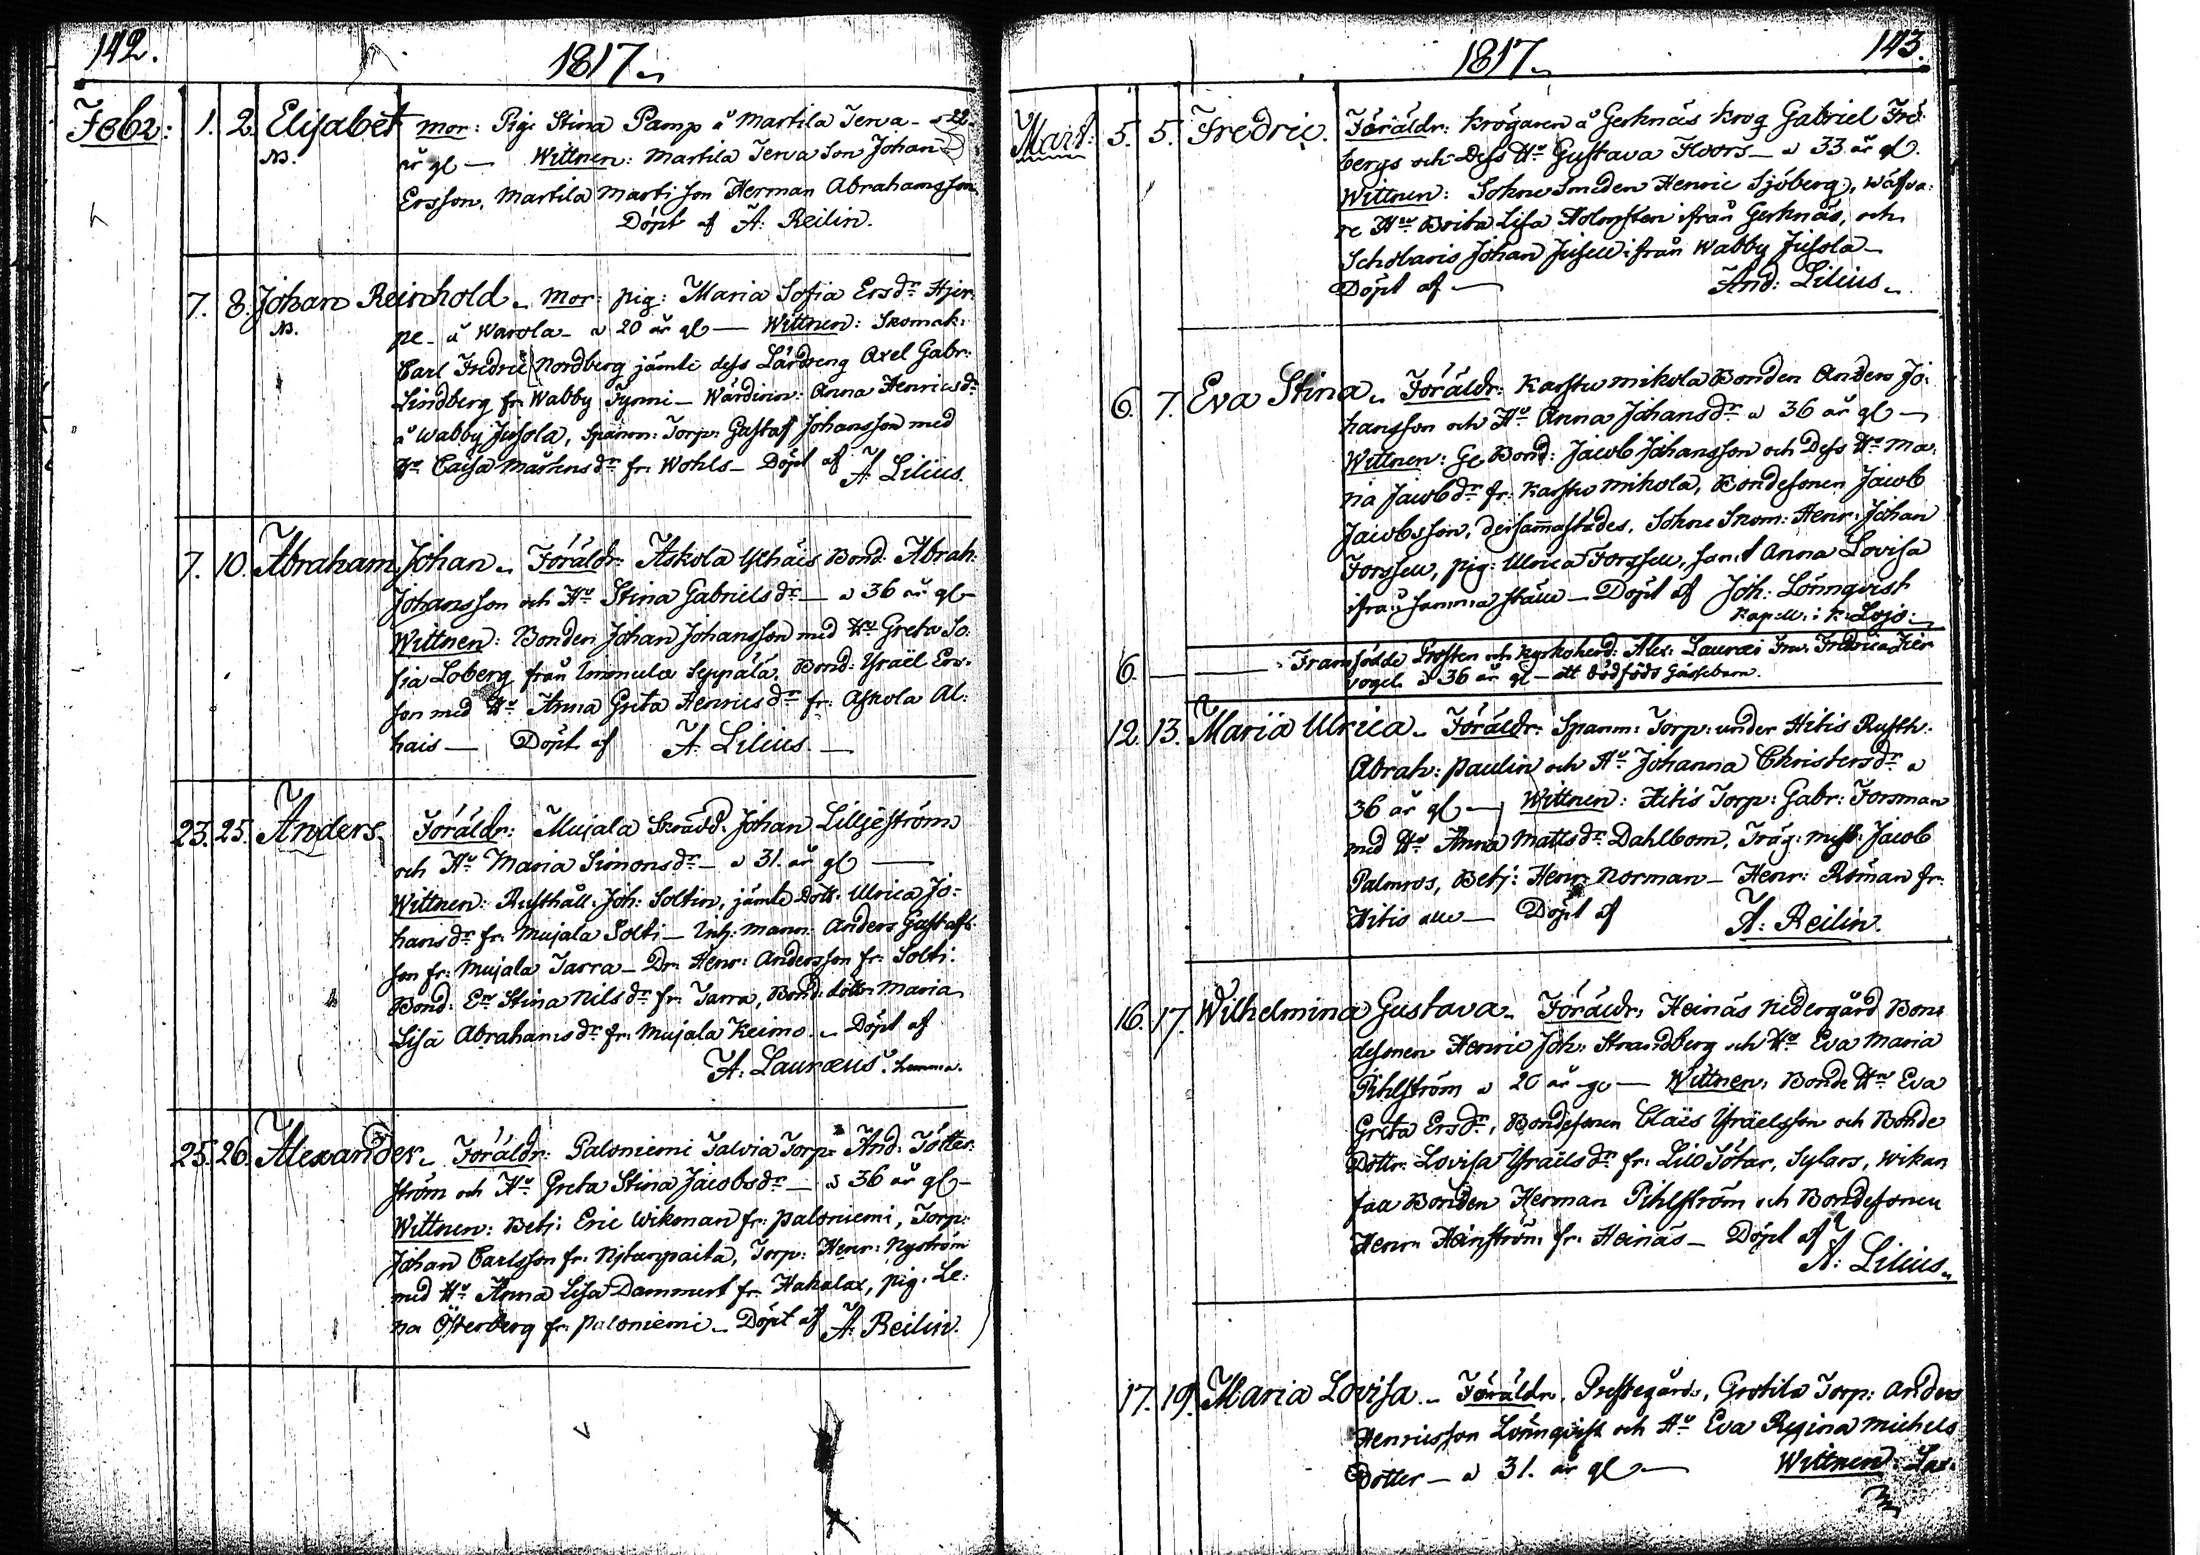 142.
1817.
Febr: 1. 2. Elisabet mor: Pig: Stina Pamp å Martila Jerva - a 22.
NB. år gl — Wittnen: Martila Jerva Son Johan
Ersson, Martila Marti Son Herman Abrahamsson.
Döpt af A: Reilin.
7. 8. Johan Reinhold. mor: pig: Maria Sofia Ersdr Hjer-
NB. pe - å Warola - a 20 år gl — Wittnen: Skomak:
Carl Fredric Nordberg jämte dess Lärdreng Axel Gabr:
Lindberg fr: Wabby Tynni - Wärdinn: Anna Henricsdr
å Wabby Jusola, Spanm: Torp: Gustaf Johansson med
Hu Caisa Mårtensdr fr: Wohls - Döpt af A: Lilius.
7. 10. Abraham Johan. Föräldr: Askola Bond: Abrah:
Johansson och Hu Stina Gabrielsdr — a 36 år gl -
Wittnen: Bonden Johan Johansson med Hu Greta So-
fia Loberg från Immula Seppälä, Bond: Ysraël Ers-
son med Hu Anna Greta Henricsdr fr: Askola Al-
hais — Döpt af A: Lilius. —
23. 25. Anders. Föräldr: Mujala Skrädd: Johan Liljeström
och Hu Maria Simonsdr - a 31. år gl —
Wittnen: Rusthåll: Joh: Soltin, jämte Dott: Ulrica Jo-
hansdr fr: Mujala Solti - Inh: mann: Anders Gustafs-
son fr: Mujala Jarra - Dr: Henr: Andersson fr: Solti:
Bond: Stina Nilsdr fr: Jarra, Bond: dottr: Maria
Lisa Abrahamsdr fr: Mujala Keimo. - Döpt af
A: Lauræus.
25. 26. Alexander. Föräldr: Paloniemi Talvia Torp: And: Tötter-
ström och Hu Greta Stina Jacobsdr — a 36 år gl -
Wittnen: Betj: Eric Wikman fr: Paloniemi, Torp:
Johan Carlsson fr: Torp: Henr: Nyström
med Hu Anna Lisa Dammert fr: Hakalax, pig: Le-
na Österberg fr: Paloniemi - Döpt af A: Reilin.
143.
1817.
Mart: 5. 5. Fredric. Föräldr: Krögaren å Gerknäs Krog Gabriel Frö-
bergs och Dess Hu Gustava Floors - a 33 år gl.
Wittnen: Sokne Smeden Henric Sjöberg, wäfva-
re Hu Brita Lisa Holmsten ifrån Gerknäs, och
Scholaris Johan Juselii ifrån Wabby Jusola -
Döpt af — And: Lilius.
6. 7. Eva Stina. Föräldr: Karstu Mikola Bonden Anders Jo-
hansson och Hu Anna Johansdr a 36 år gl —
Wittnen: Bond: Jacob Johansson och Dess Hu Ma-
ria Jacobdr fr: Karstu Mikola, Bondesonen Jacob
Jacobsson, dersammastädes. Sokne Skom: Henr: Johan
Forssell, pig: Ulrica Forssell, samt Anna Lovisa
ifrån samma ställe - Döpt af Joh: Lönnqvist
Kapell: i K: Lojo:
6. — — Framfödde Prosten och Kyrkoherd: Alex: Lauræi Fru: Fredrica Fier
vogel a 36 år gl - ett dödfödt Gåssebarn.
12. 13. Maria Ulrica. Föräldr: Spanm: Torp: under Hitis Rusth:
Abrah: Paulin och Hu Johanna Christersdr a
36 år gl — Wittnen: Hitis Torp: Gabr: Forsman
med Hu Anna Mattsdr Dahlbom, Träg: mäst: Jacob
Palmros, Betj: Henr: Norman - Henr: Röman fr:
Hitis alle — Döpt af A: Reilin.
16. 17. Wilhelmina Gustava. Föräldr: Heinäs Nedergård Bon-
desonen Henric Joh: Strandberg och Hu Eva Maria
Pihlström a 20 år gl — Wittnen: Bonde Hu Eva
Greta Ersdr, Bondesonen Claës Ysräelsson och Bonde
Dottr: Lovisa Ysraëlsdr fr: Lill Sylars,
Bonden Herman Pihlström och Bondesonen
Henr: Heinström fr: Heinäs - Döpt af
A: Lilius.
17. 19. Maria Lovisa. Föräldr: Prestegårds, Grotila Torp: Anders
Henricsson Lönnqvist och Hu Eva Regina Michels
Dotter - a 31. år gl — Wittnen: